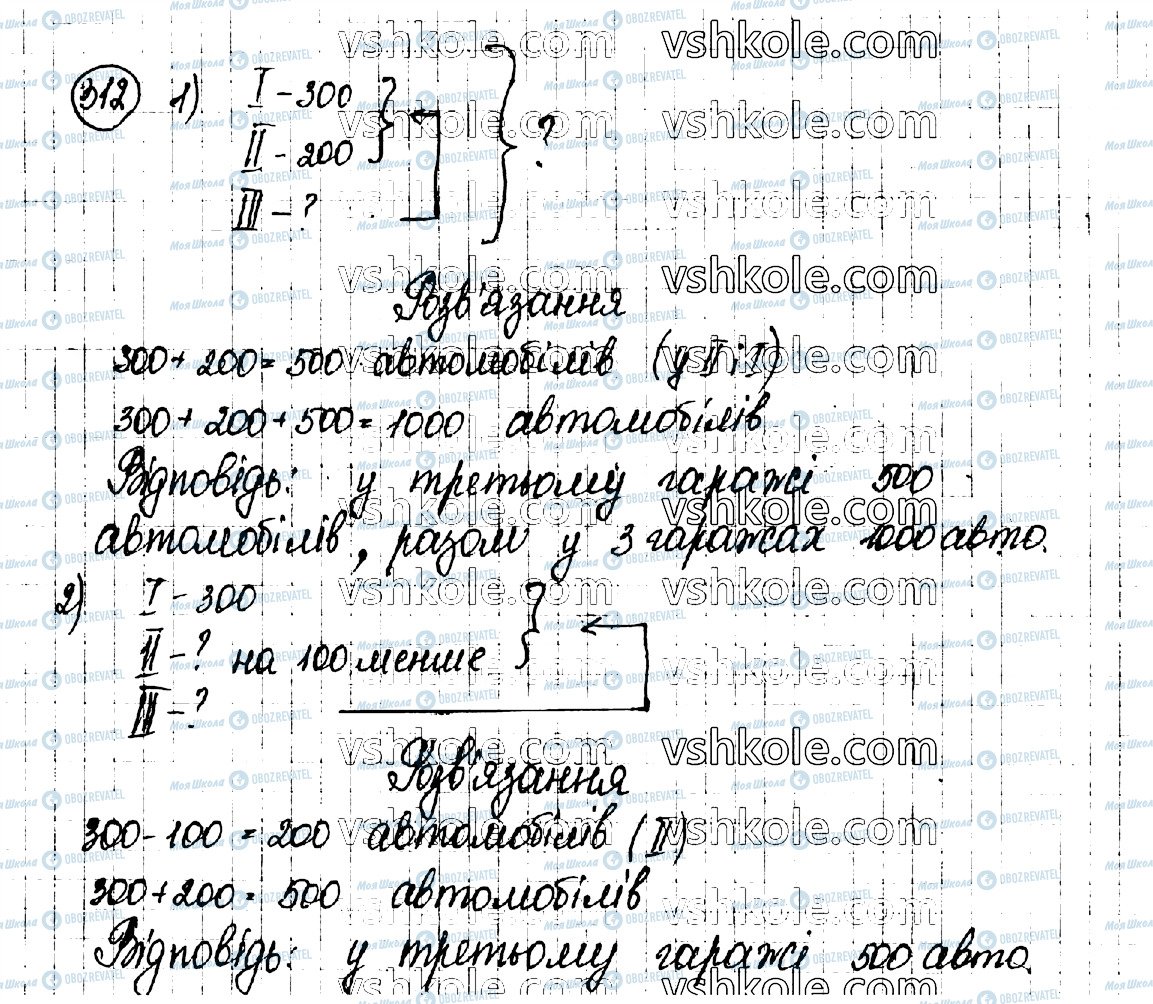 312 1) I - 300
II - 200 ?
III - ?
Розв'язання
300 + 200 = 500 автомобілів (у II і I)
300 + 200 + 500 = 1000 автомобілів
Відповідь: у третьому гаражі 500
автомобілів, разом у 3 гаражах 1000 авто.
2) I - 300
II - ? на 100 менше
III - ?
Розв'язання
300 - 100 = 200 автомобілів (II)
300 + 200 = 500 автомобілів
Відповідь: у третьому гаражі 500 авто.
vshkole.com
МояШкола OBOZREVATEL